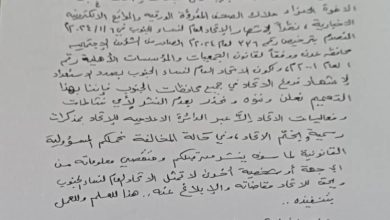 الاخوة الاعزاء ملاك الصحف المقروءة الورقية والمواقع الالكترونية
الاخبارية، نظراً لاشهار الاتحاد العام لنساء الجنوب في
بترخيص رقم لعام ٢٠٢٤ الصادر من الشؤون الاجتماعية
محافظة عدن ووفقاً لقانون الجمعيات والمؤسسات الأهلية رقم
١ لعام ٢٠٠١، ولكون الاتحاد العام لنساء الجنوب بصدد الاستعداد
لاشهار فروع الاتحاد في جميع محافظات الجنوب فإننا بهذا
التعميم نعلن وننوه ونحذر بعدم النشر لأي نشاطات
وفعاليات الاتحاد إلا عبر الدائرة الاعلامية للاتحاد بمذكرات
رسمية بختم الاتحاد، وفي حالة المخالفة نحملكم المسؤولية
القانونية لما سوف ينشر من قبلكم ومعلوماته من
أي جهة أو شخصية أخرى لا تمثل الاتحاد العام لنساء الجنوب
ويحق للاتحاد مقاضاته والإبلاغ عنه .. هذا للعلم والعمل
بتنفيذه ..